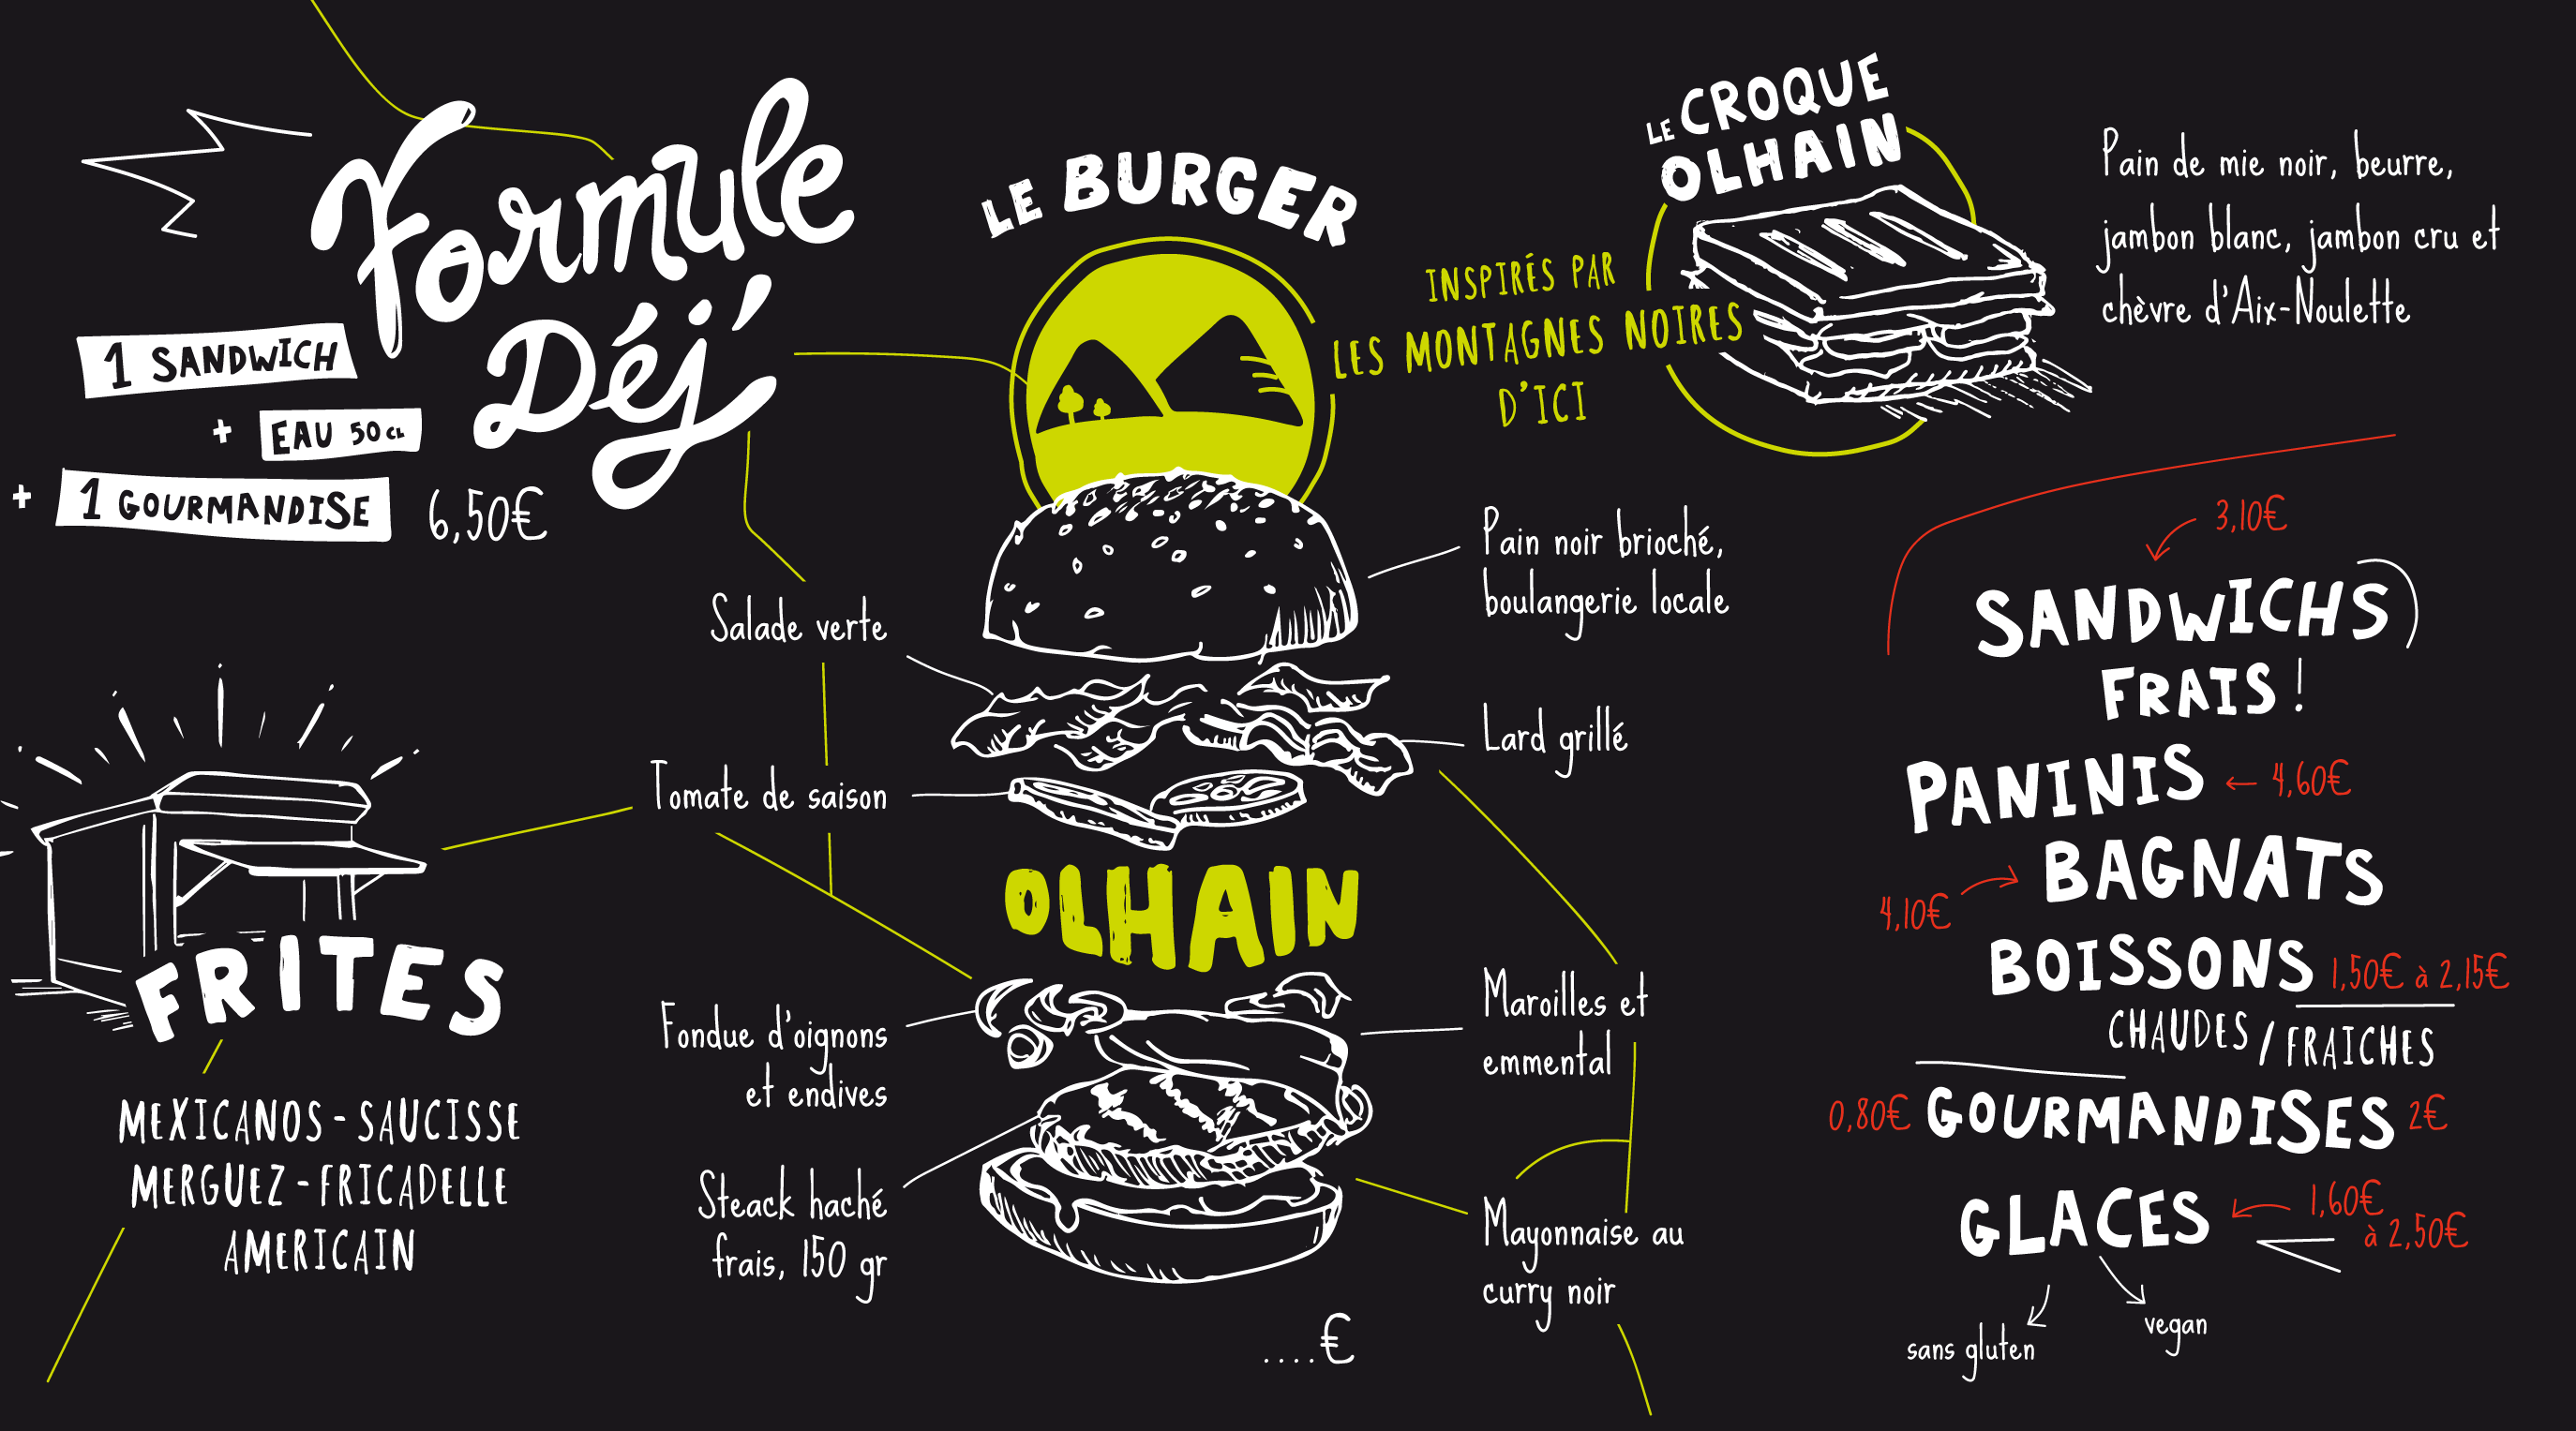 Formule
Déj'
1 SANDWICH
+ EAU 50 CL
+ 1 GOURMANDISE 6,50€
FRITES
MEXICANOS - SAUCISSE
MERGUEZ - FRICADELLE
AMERICAIN
LE BURGER
OLHAIN
Salade verte
Tomate de saison
Fondue d'oignons
et endives
Steack haché
frais, 150 gr
Pain noir brioché,
boulangerie locale
Lard grillé
Maroilles et
emmental
Mayonnaise au
curry noir
....€
INSPIRÉS PAR
LES MONTAGNES NOIRES
D'ICI
LE CROQUE
OLHAIN
Pain de mie noir, beurre,
jambon blanc, jambon cru et
chèvre d'Aix-Noulette
3,10€
SANDWICHS
FRAIS !
PANINIS ← 4,60€
BAGNATS
4,10€
BOISSONS 1,50€ à 2,15€
CHAUDES / FRAICHES
0,80€ GOURMANDISES 2€
GLACES 1,60€
à 2,50€
sans gluten
vegan